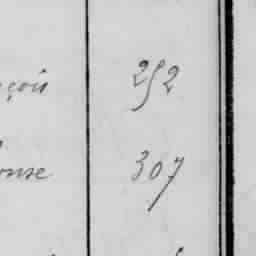 çois 252
onse 307